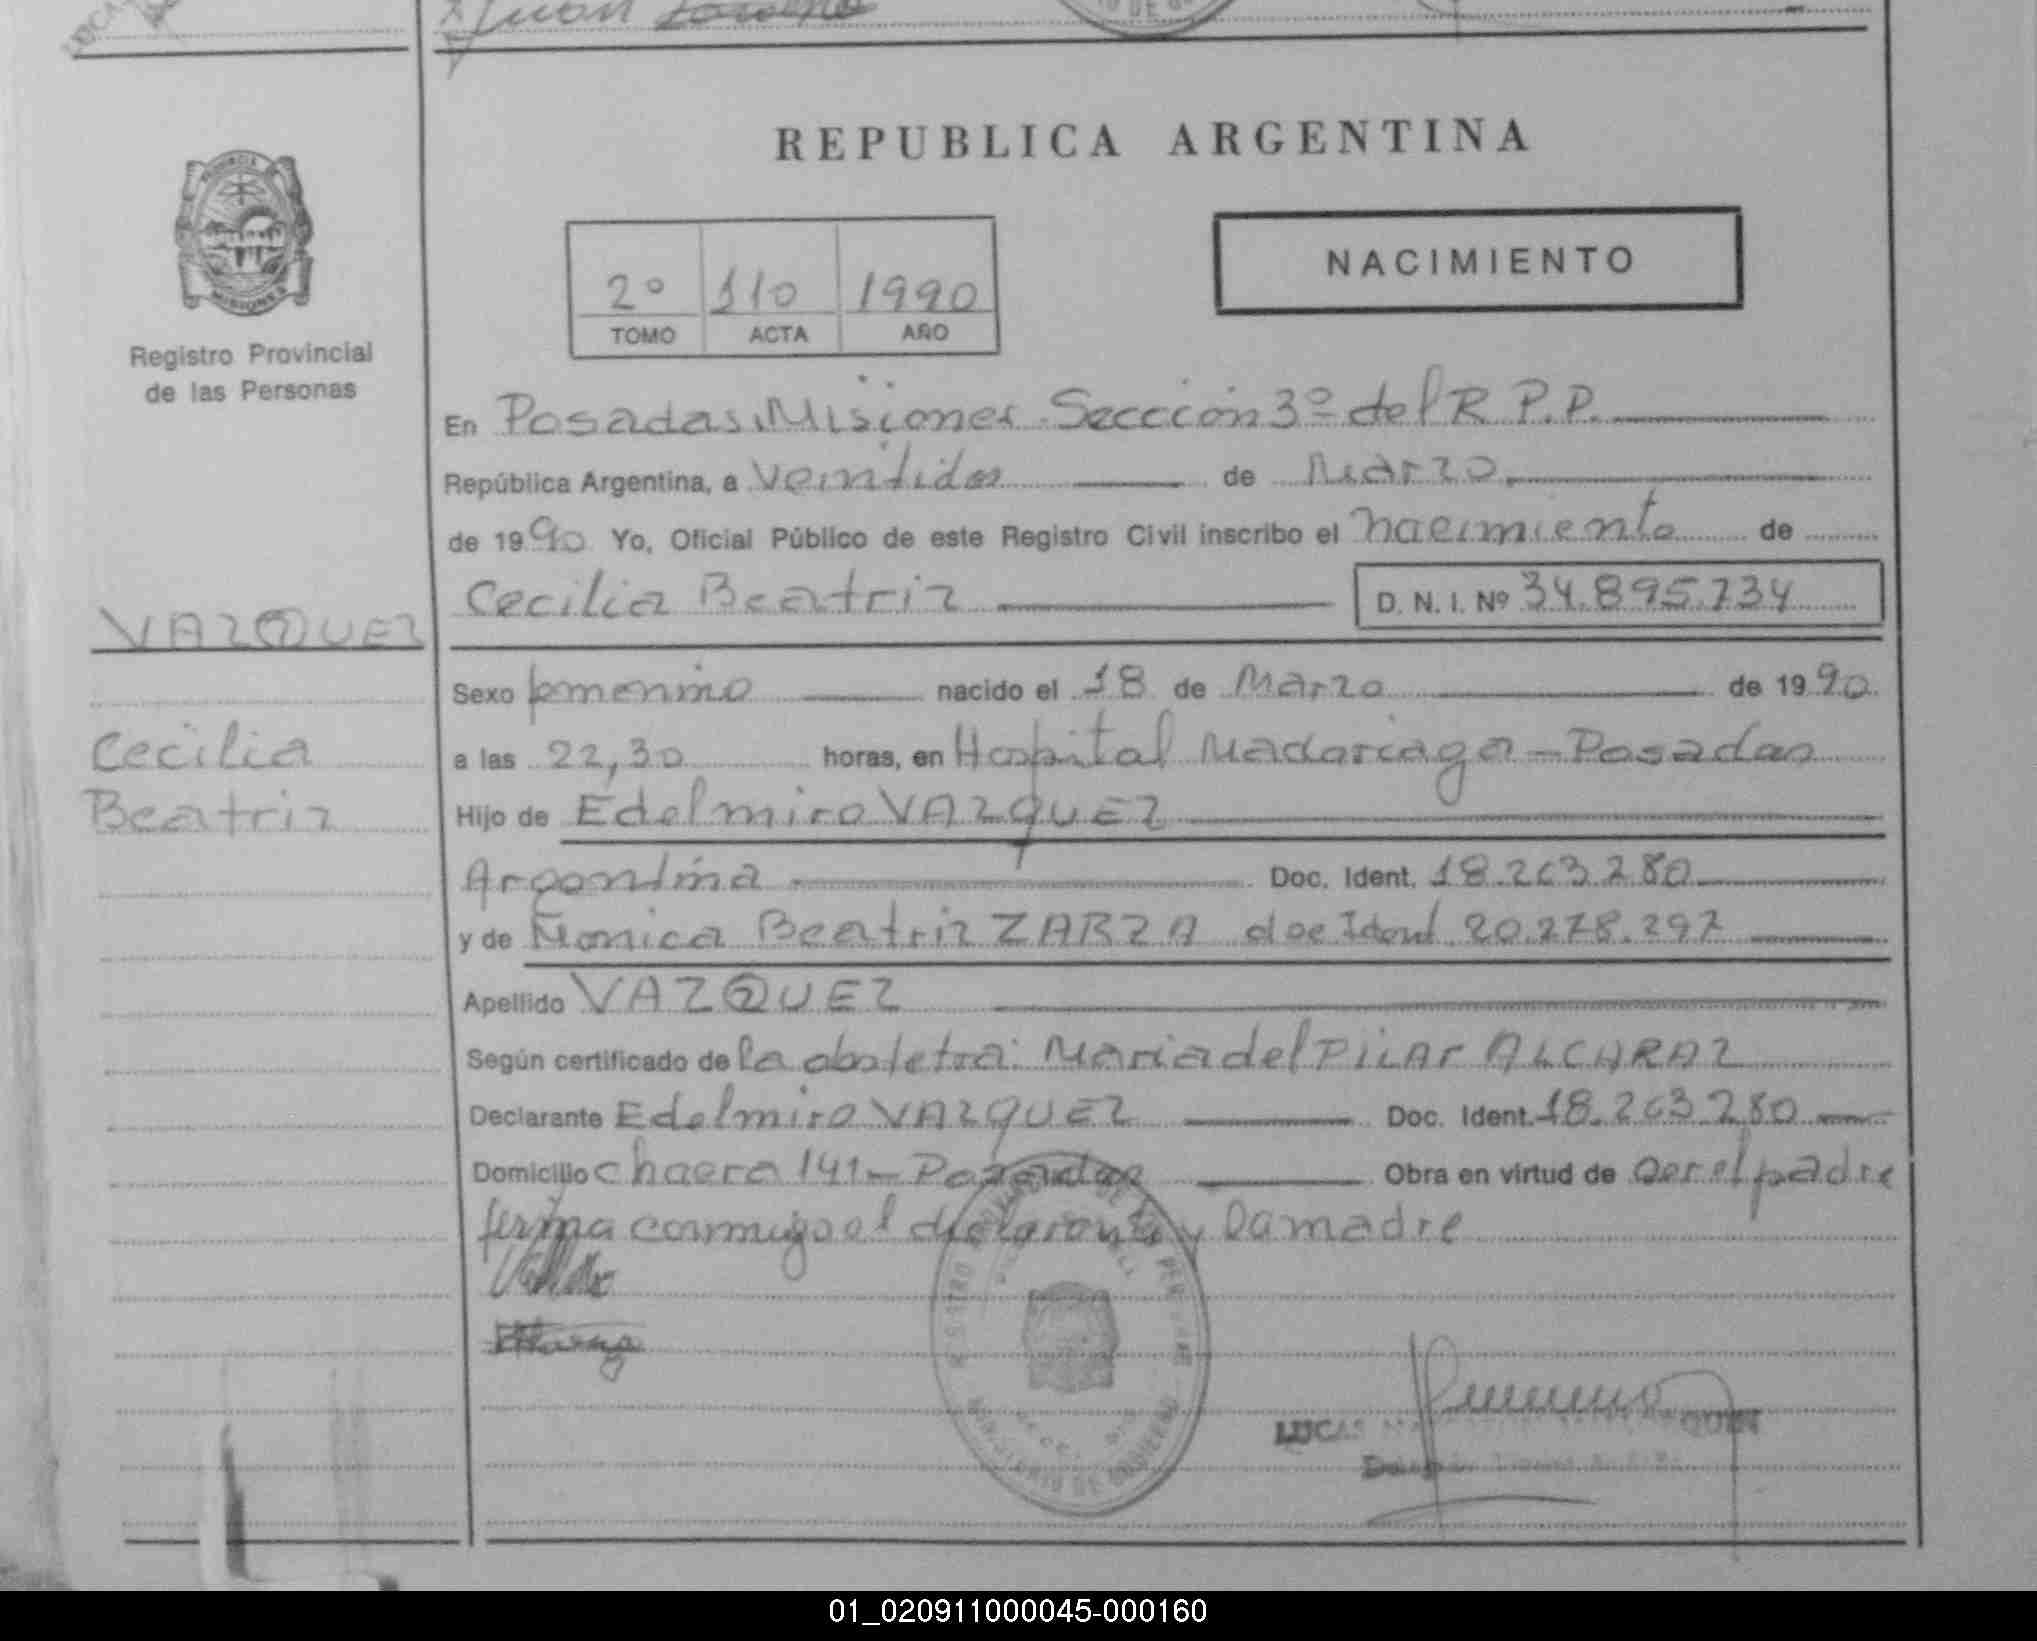 Juan
REPUBLICA ARGENTINA
NACIMIENTO
2º 110 1990
TOMO ACTA AÑO
Registro Provincial
de las Personas
En Posadas, Misiones. Sección 3º del R.P.P.
República Argentina, a veintidos de Marzo
de 1990 Yo, Oficial Público de este Registro Civil inscribo el nacimiento de
Cecilia Beatriz D. N. I. Nº 34.895.734
VAZQUEZ
Sexo femenino nacido el 18 de Marzo de 1990
Cecilia
a las 22,30 horas, en Hospital Madariaga - Posadas
Beatriz
Hijo de Edelmiro VAZQUEZ
Argentina Doc. Ident. 18.263.280
y de Monica Beatriz ZARZA doc Ident 20.278.297
Apellido VAZQUEZ
Según certificado de la obstetra: Maria del PILAr ALCARAZ
Declarante Edelmiro VAZQUEZ Doc. Ident. 18.263.280
Domicilio chacra 141 - Posadas Obra en virtud de ser el padre
firma conmigo el declarante y la madre
LUCAS
01_020911000045-000160